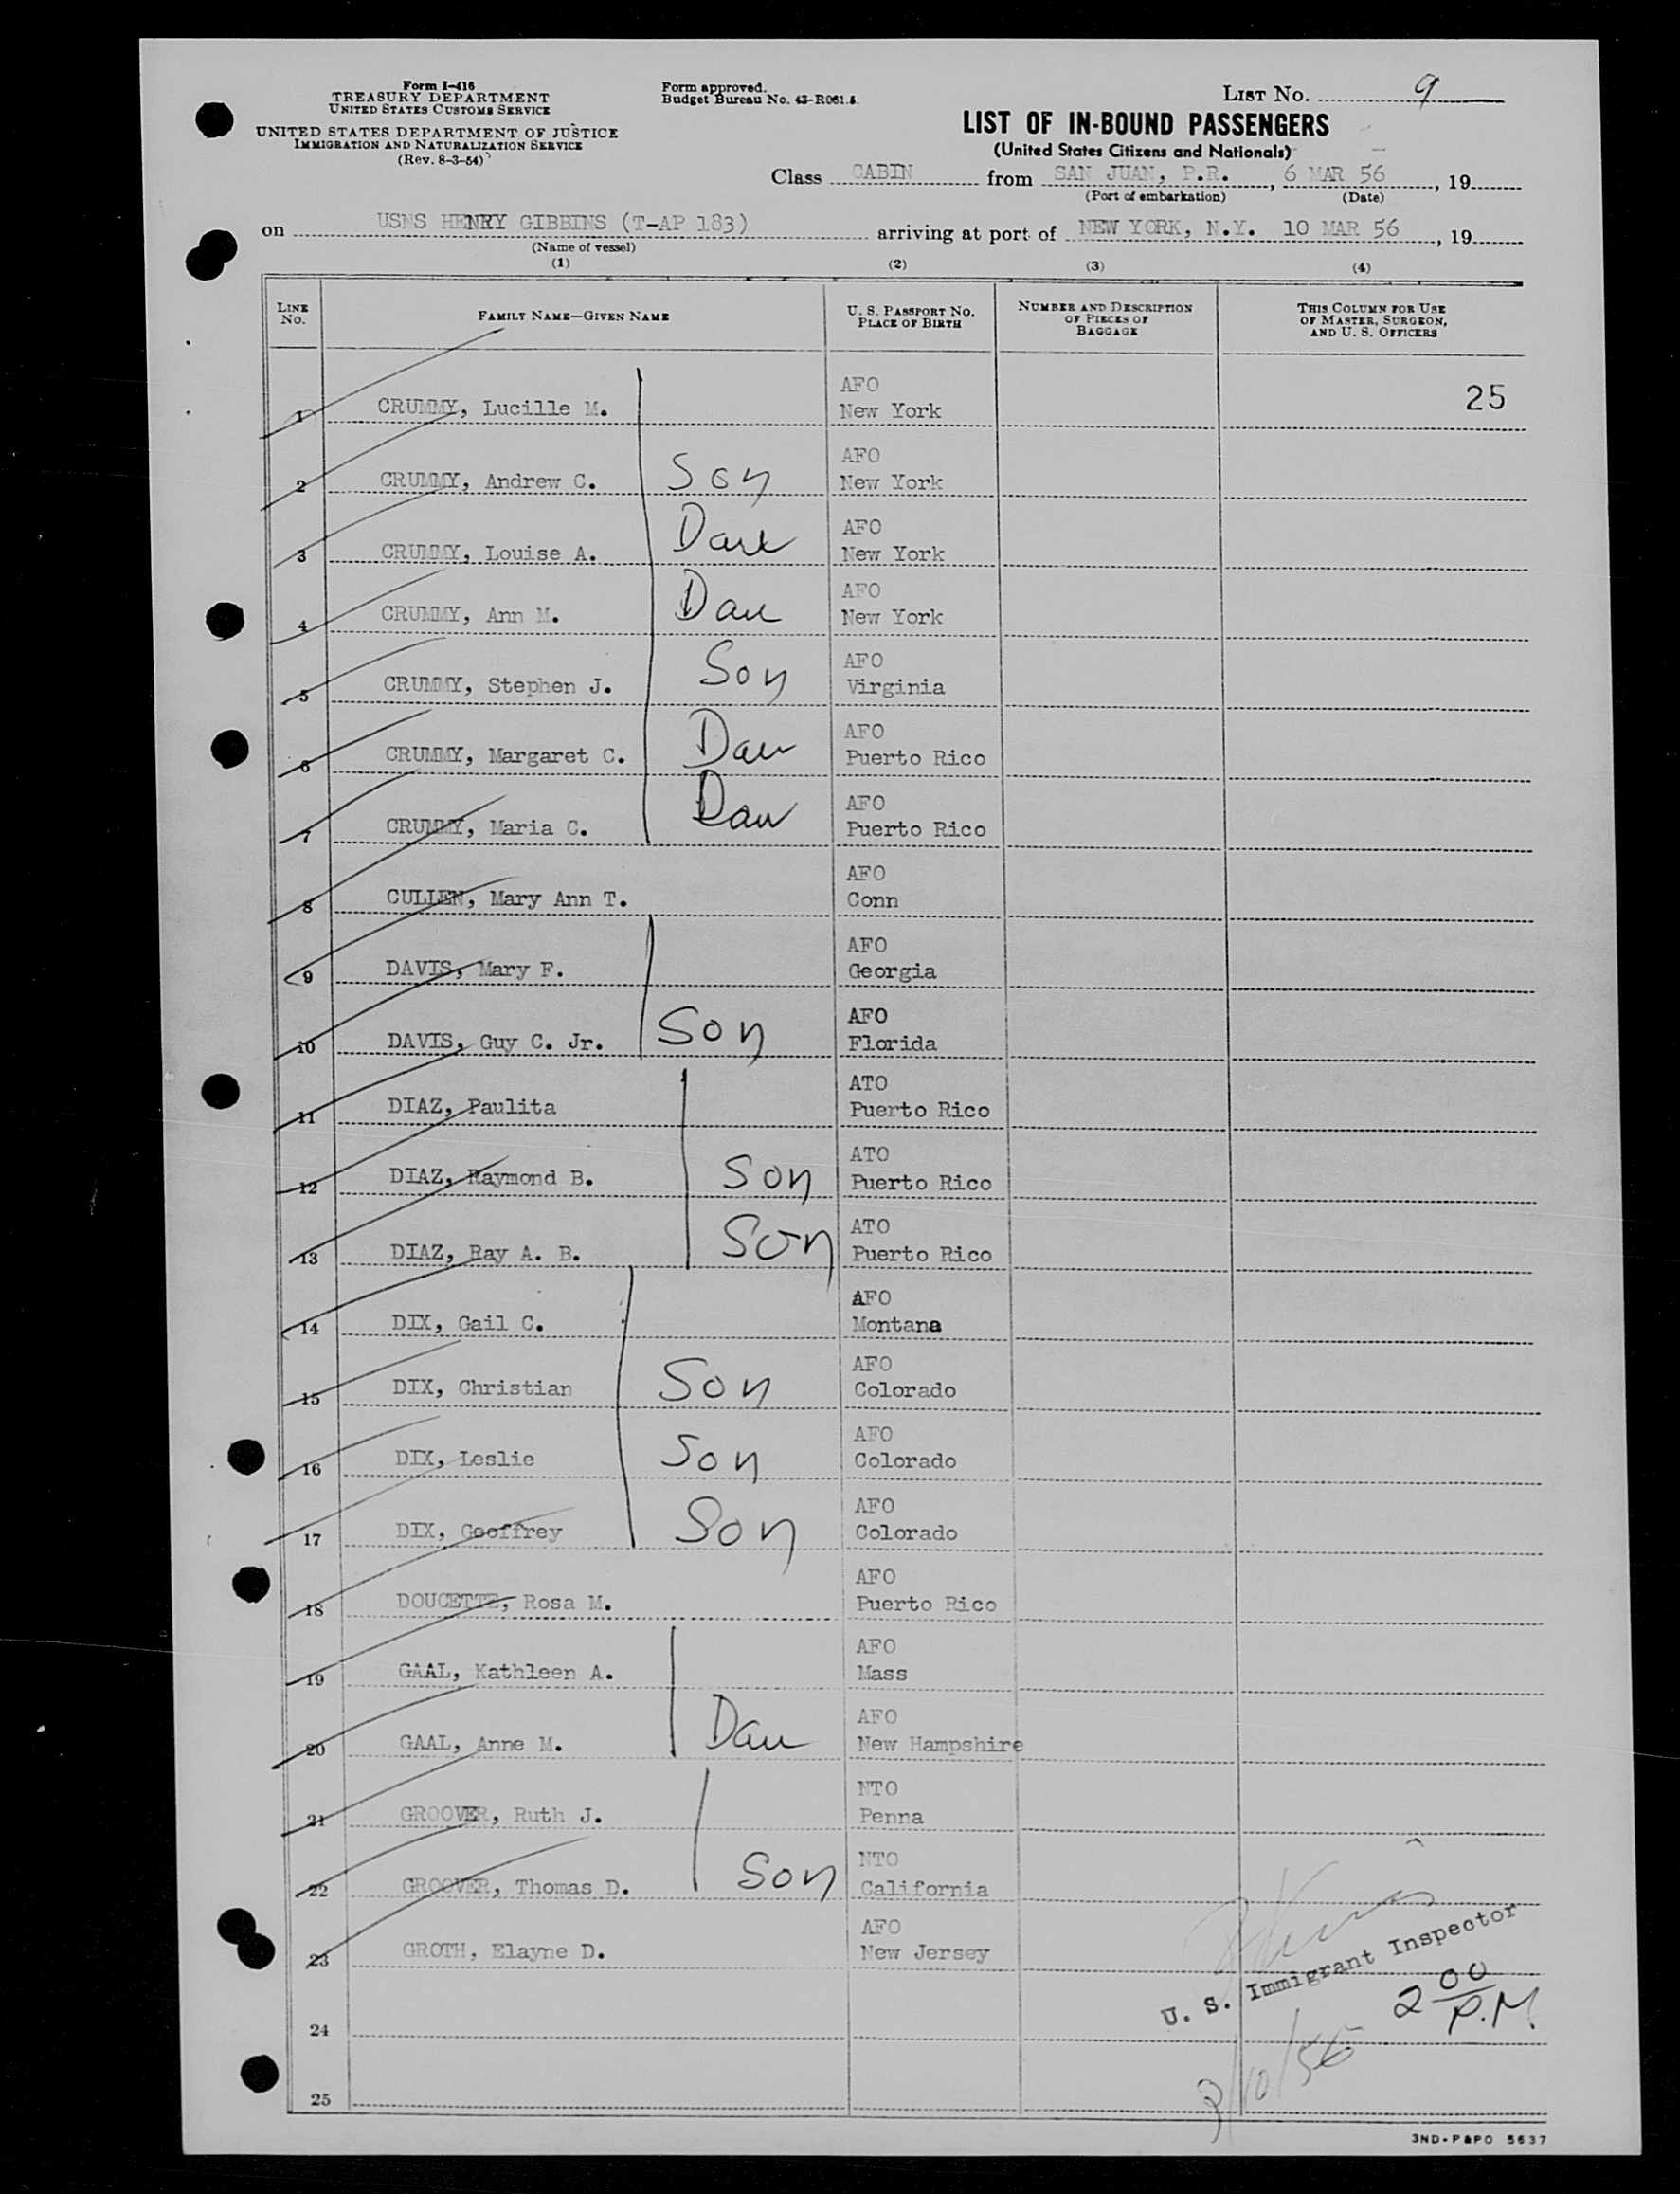 Form I-416
TREASURY DEPARTMENT
UNITED STATES CUSTOMS SERVICE
UNITED STATES DEPARTMENT OF JUSTICE
IMMIGRATION AND NATURALIZATION SERVICE
(Rev. 8-3-54)
Form approved.
Budget Bureau No. 43-R061.5.
LIST No. 9
LIST OF IN-BOUND PASSENGERS
(United States Citizens and Nationals)
Class CABIN from SAN JUAN, P.R. , 6 MAR 56 , 19
(Port of embarkation) (Date)
on USNS HENRY GIBBINS (T-AP 183) arriving at port of NEW YORK, N.Y. 10 MAR 56 , 19
(Name of vessel)
(1) (2) (3) (4)
LINE No. FAMILY NAME—GIVEN NAME U. S. PASSPORT No. PLACE OF BIRTH NUMBER AND DESCRIPTION OF PIECES OF BAGGAGE THIS COLUMN FOR USE OF MASTER, SURGEON, AND U. S. OFFICERS
AFO
1 CRUMMY, Lucille M. New York 25
AFO
2 CRUMMY, Andrew C. Son New York
AFO
3 CRUMMY, Louise A. Dau New York
AFO
4 CRUMMY, Ann M. Dau New York
AFO
5 CRUMMY, Stephen J. Son Virginia
AFO
6 CRUMMY, Margaret C. Dau Puerto Rico
AFO
7 CRUMMY, Maria C. Dau Puerto Rico
AFO
8 CULLEN, Mary Ann T. Conn
AFO
9 DAVIS, Mary F. Georgia
AFO
10 DAVIS, Guy C. Jr. Son Florida
ATO
11 DIAZ, Paulita Puerto Rico
ATO
12 DIAZ, Raymond B. Son Puerto Rico
ATO
13 DIAZ, Ray A. B. Son Puerto Rico
AFO
14 DIX, Gail C. Montana
AFO
15 DIX, Christian Son Colorado
AFO
16 DIX, Leslie Son Colorado
AFO
17 DIX, Geoffrey Son Colorado
AFO
18 DOUCETTE, Rosa M. Puerto Rico
AFO
19 GAAL, Kathleen A. Mass
AFO
20 GAAL, Anne M. Dau New Hampshire
NTO
21 GROOVER, Ruth J. Penna
NTO
22 GROOVER, Thomas D. Son California
AFO
23 GROTH, Elayne D. New Jersey
U. S. Immigrant Inspector
2 00 P.M.
24
3/10/56
25
3ND-P&PO 5637